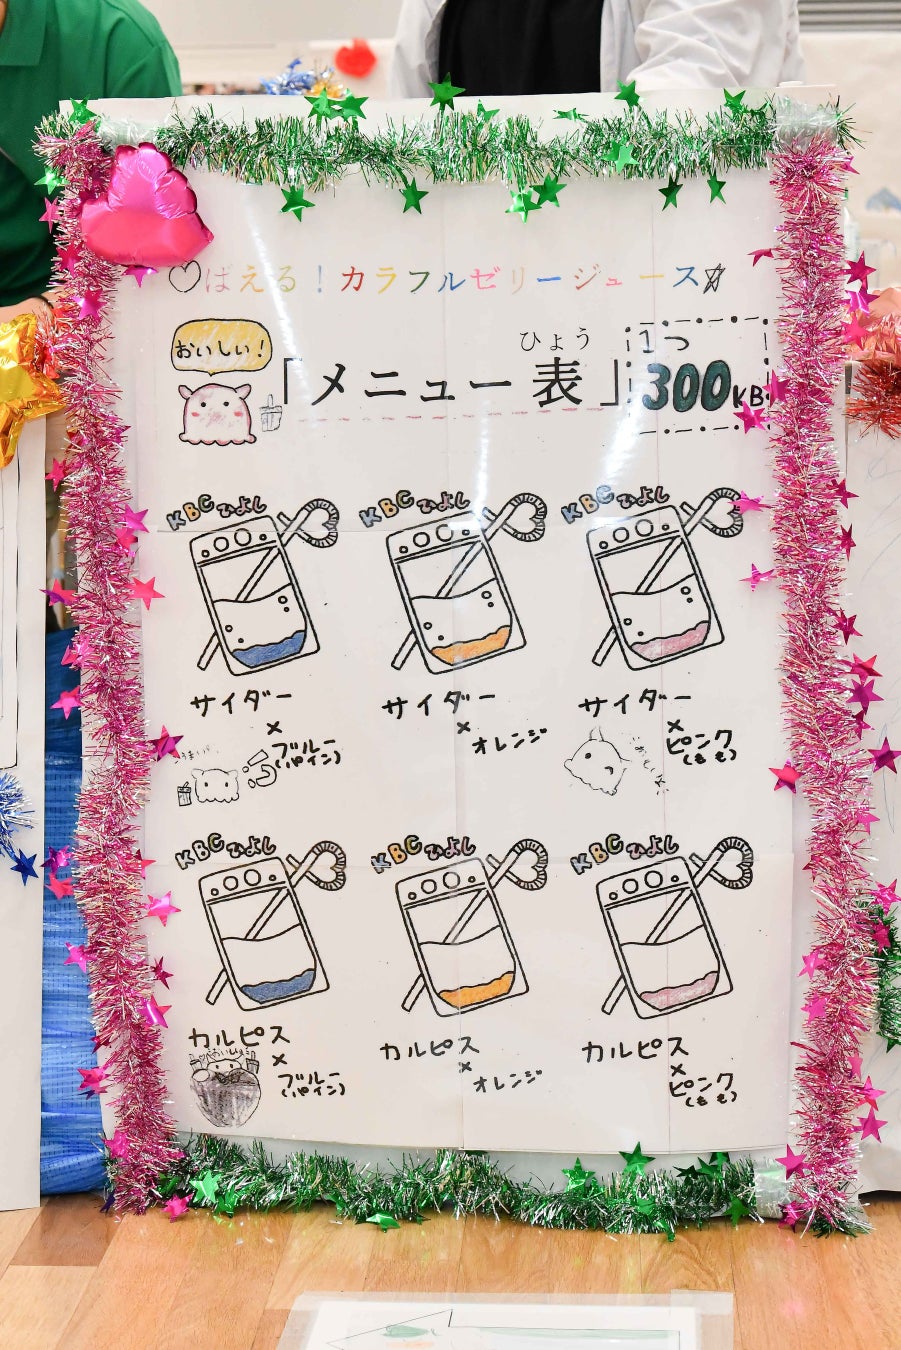 ♡ばえる！カラフルゼリージュース☆
おいしい！
ひょう
「メニュー表」
1つ
300KB
KBCひよし
KBCひよし
KBCひよし
サイダー
×
ブルー
(パイン)
サイダー
×
オレンジ
サイダー
×
ピンク
(もも)
KBCひよし
KBCひよし
KBCひよし
カルピス
×
ブルー
(パイン)
カルピス
×
オレンジ
カルピス
×
ピンク
(もも)